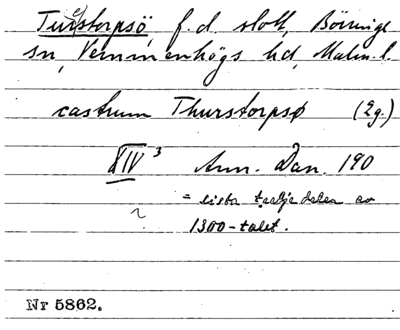 Turestorpsö, f.d. slott, Börringe
sn, Vemmenhögs hd, Malm. l.
castrum Thurstorpsø (2g.)
XIV³ Ann. Dan. 190
= sista tredjedelen av
?
1300-talet.
Nr 5862.